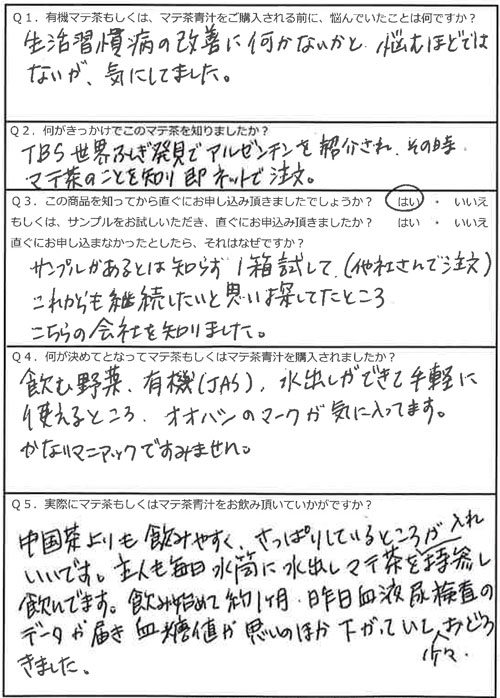 Q1．有機マテ茶もしくは、マテ茶青汁をご購入される前に、悩んでいたことは何ですか？
生活習慣病の改善に何かないかと、悩むほどでは
ないが、気にしてました。
Q2．何がきっかけでこのマテ茶を知りましたか？
TBS世界ふしぎ発見でアルゼンチンを紹介され、その時
マテ茶のことを知り即ネットで注文。
Q3．この商品を知ってから直ぐにお申し込み頂きましたでしょうか？　はい　・　いいえ
もしくは、サンプルをお試しいただき、直ぐにお申込み頂きましたか？　はい　・　いいえ
直ぐにお申し込まなかったとしたら、それはなぜですか？
サンプルがあるとは知らず1箱試して、（他社さんで注文）
これからも継続したいと思い探してたところ
こちらの会社を知りました。
Q4．何が決めてとなってマテ茶もしくはマテ茶青汁を購入されましたか？
飲む野菜、有機（JAS）、水出しができて手軽に
使えるところ、オオハシのマークが気に入ってます。
かなりマニアックですみません。
Q5．実際にマテ茶もしくはマテ茶青汁をお飲み頂いていかがですか？
中国茶よりも飲みやすく、さっぱりしているところが
いいです。主人も毎日水筒に水出しマテ茶を入れ持参し
飲んでます。飲み始めて約1ヶ月、昨日血液尿検査の
データが届き血糖値が思いのほか下がっていて、少々おどろ
きました。